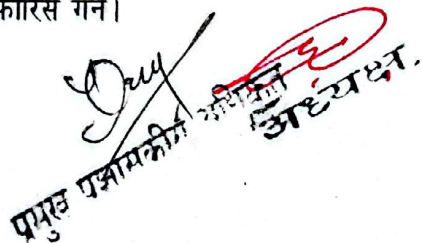 फारिस गर्ने।
प्रमुख प्रशासकीय अधिकृत
अध्यक्ष